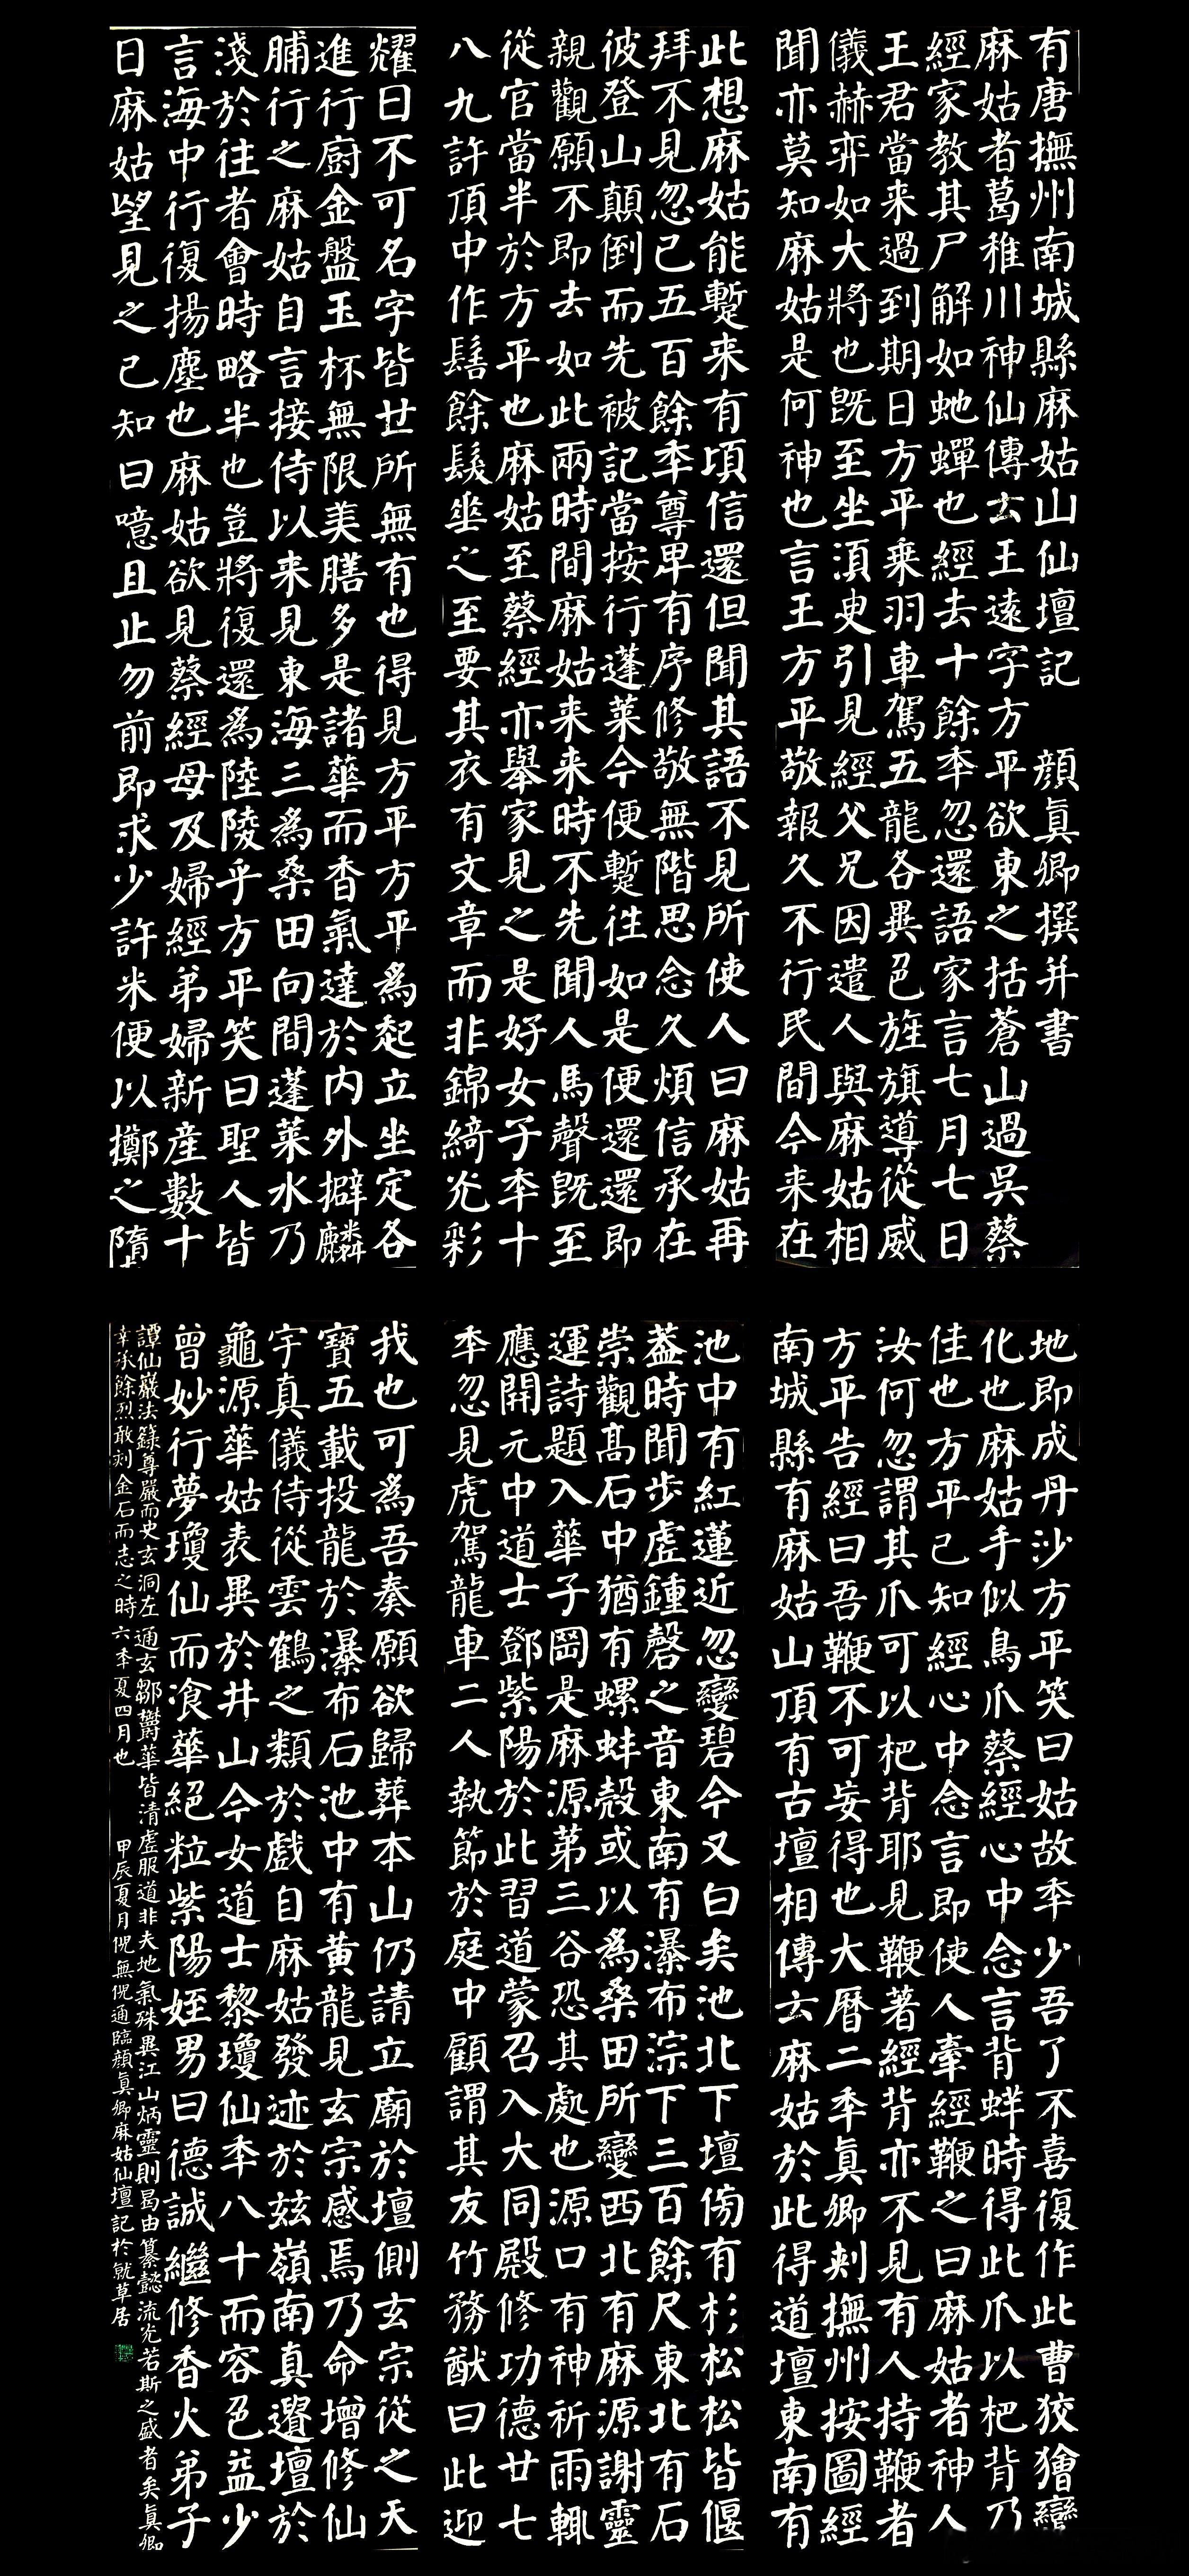 有唐撫州南城縣麻姑山仙壇記 顏真卿撰并書
麻姑者葛稚川神仙傳云王遠字方平欲東之括蒼山過吳蔡
經家教其尸解如虵蟬也經去十餘年忽還語家言七月七日
王君當来過到期日方平乗羽車駕五龍各異色旌旗導從威
儀赫弈如大將也既至坐湏臾引見經父兄因遣人與麻姑相
聞亦莫知麻姑是何神也言王方平敬報久不行民間今来在
此想麻姑能蹔来有頃信還但聞其語不見所使人曰麻姑再
拜不見忽已五百餘年尊卑有序修敬無階思念久煩信承在
彼登山顛倒而先被記當按行蓬萊今便蹔往如是便還還即
親觀願不即去如此兩時間麻姑来来時不先聞人馬聲既至
從官當半於方平也麻姑至蔡經亦舉家見之是好女子年十
八九許頂中作髻餘髮垂之至要其衣有文章而非錦綺光彩
耀日不可名字皆世所無有也得見方平方平為起立坐定各
進行廚金盤玉杯無限美膳多是諸華而香氣達於内外擗麟
脯行之麻姑自言接侍以来見東海三為桑田向間蓬萊水乃
淺於往者會時略半也豈將復還為陸陵乎方平笑曰聖人皆
言海中行復揚塵也麻姑欲見蔡經母及婦經弟婦新産數十
日麻姑望見之已知曰噫且止勿前即求少許米便以擲之墮
地即成丹沙方平笑曰姑故年少吾了不喜復作此曹狡獪變
化也麻姑手似鳥爪蔡經心中念言背蛘時得此爪以杷背乃
佳也方平已知經心中念言即使人牽經鞭之曰麻姑者神人
汝何忽謂其爪可以杷背耶見鞭著經背亦不見有人持鞭者
方平告經曰吾鞭不可妄得也大曆二年真卿刺撫州按圖經
南城縣有麻姑山頂有古壇相傳云麻姑於此得道壇東南有
池中有紅蓮近忽變碧今又白矣池北下壇傍有杉松松皆偃
蓋時聞步虛鍾磬之音東南有瀑布淙下三百餘尺東北有石
崇觀高石中猶有螺蚌殼或以為桑田所變西北有麻源謝靈
運詩題入華子岡是麻源第三谷恐其處也源口有神祈雨輒
應開元中道士鄧紫陽於此習道蒙召入大同殿修功德廿七
年忽見虎駕龍車二人執節於庭中顧謂其友竹務猷曰此迎
我也可為吾奏願欲歸葬本山仍請立廟於壇側玄宗從之天
寶五載投龍於瀑布石池中有黃龍見玄宗感焉乃命增修仙
宇真儀侍從雲鶴之類於戲自麻姑發迹於茲嶺南真遺壇於
龜源華姑表異於井山今女道士黎瓊仙年八十而容色益少
曾妙行夢瓊仙而飡華絕粒紫陽姪男曰德誠繼修香火弟子
譚仙巖法錄尊嚴而史玄洞左通玄鄒欝華皆清虛服道非夫地氣殊異江山炳靈則曷由纂懿流光若斯之盛者矣真卿
幸承餘烈敢刻金石而志之時六年夏四月也 甲辰夏月倪無倪通臨顏真卿麻姑仙壇記於就草居